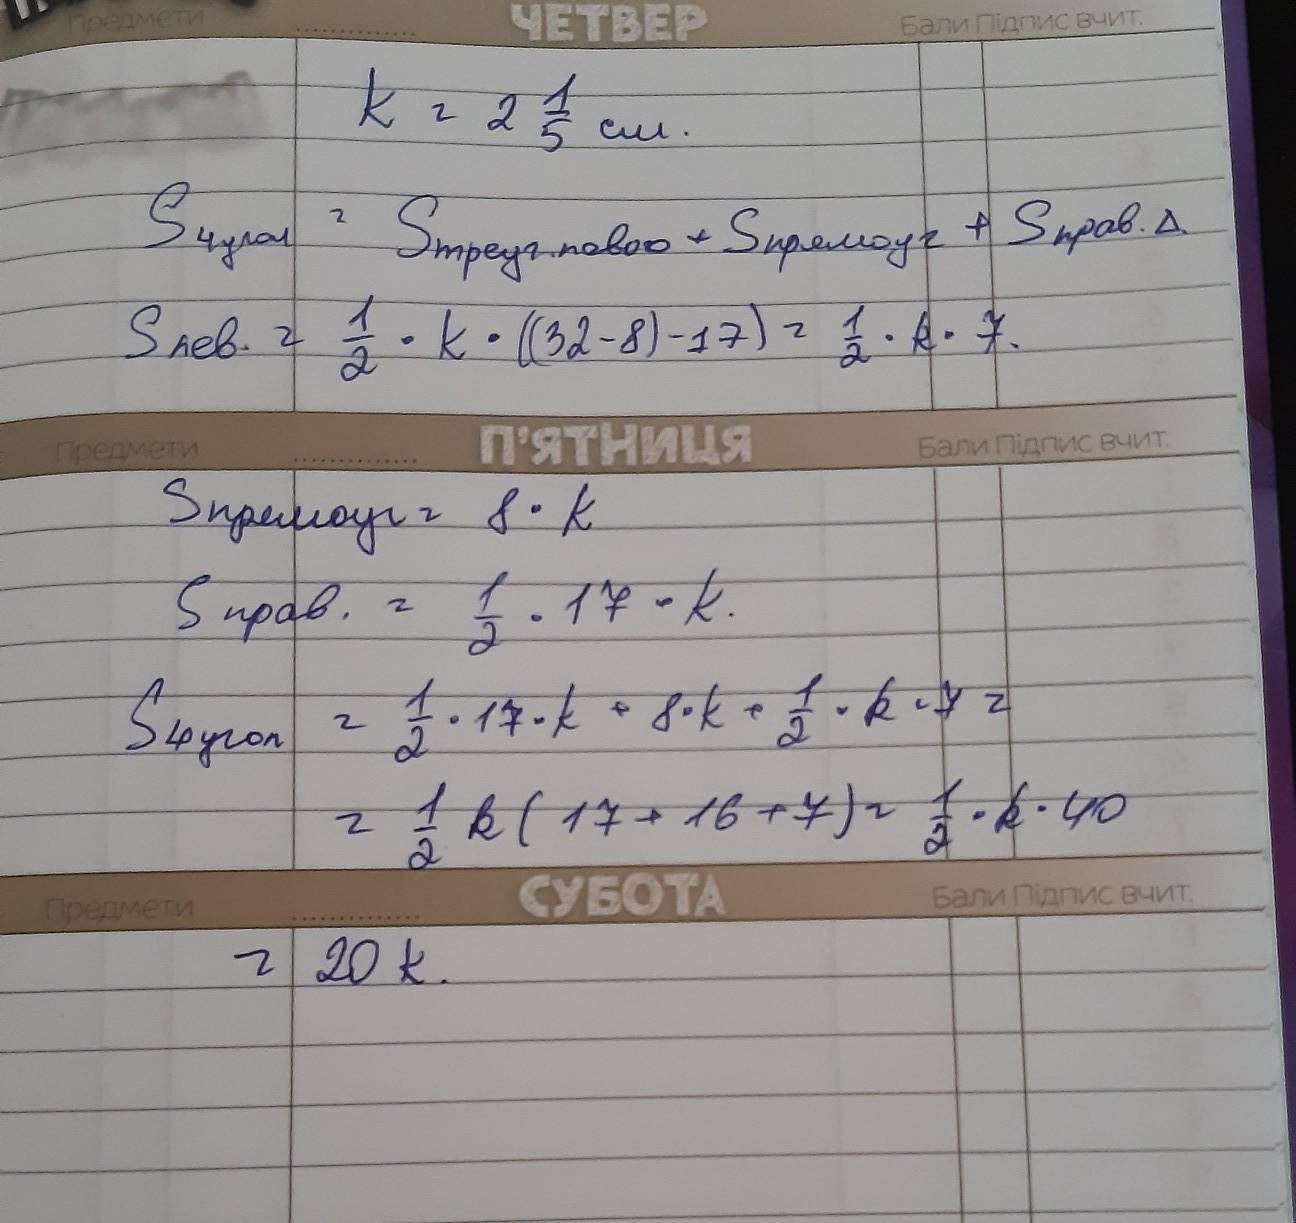 Предмети ЧЕТВЕР Бали Підпис вчит.
k = 2 1/5 см.
S4угол = Sтреуг.левого + Sпрямоуг + Sправ. Δ.
Sлев. = 1/2 · k · ((32-8)-17) = 1/2 · k · 7.
Предмети П'ЯТНИЦЯ Бали Підпис вчит.
Sпрямоуг = 8 · k
Sправ. = 1/2 · 17 · k.
S4угол = 1/2 · 17 · k + 8 · k + 1/2 · k · 7 =
= 1/2 k (17 + 16 + 7) = 1/2 · k · 40
Предмети СУБОТА Бали Підпис вчит.
= 20 k.